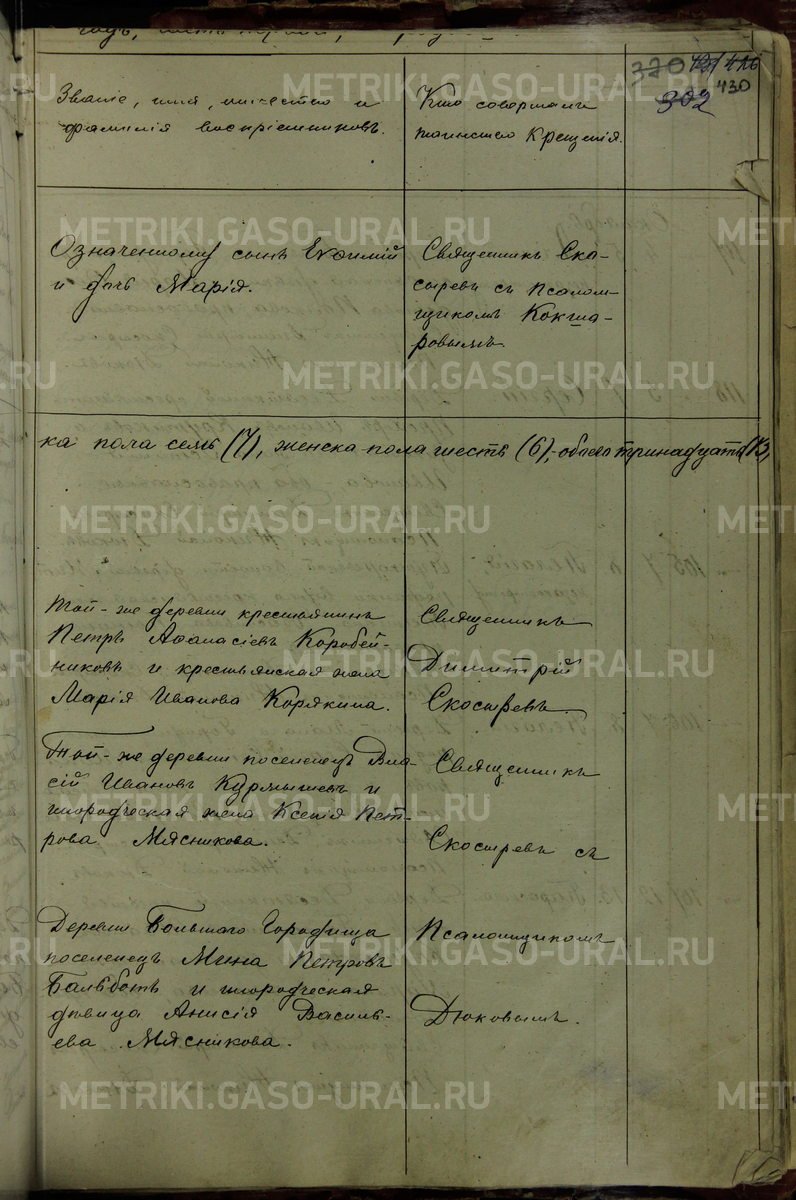 годъ, часть первая,
320 426
430
302
Званіе, имя, отчество и
фамилія воспріемниковъ.
Кто совершалъ
таинство Крещенія.
Означенному сынъ Евфимій
и дочь Марія.
Священникъ Ско-
сыревъ съ псалом-
щикомъ Кокша-
ровымъ
ка пола семь (7), женска пола шесть (6), обоего тринадцать (13)
Той-же деревни крестьянинъ
Петръ Аѳанасіевъ Коробей-
никовъ и крестьянская жена
Марія Иванова Корякина.
Священникъ
Димитрій
Скосыревъ.
Той-же деревни поселенецъ Вла-
сій Ивановъ Курмышевъ и
инородческая жена Ксенія Пет-
рова Мясникова.
Священникъ
Скосыревъ съ
Деревни Большаго Городища
поселенецъ Мина Петровъ
Бальботъ и инородческая
дѣвица Анисія Василь-
ева Мясникова.
Псаломщикомъ
Дюковымъ.
METRIKI.GASO-URAL.RU